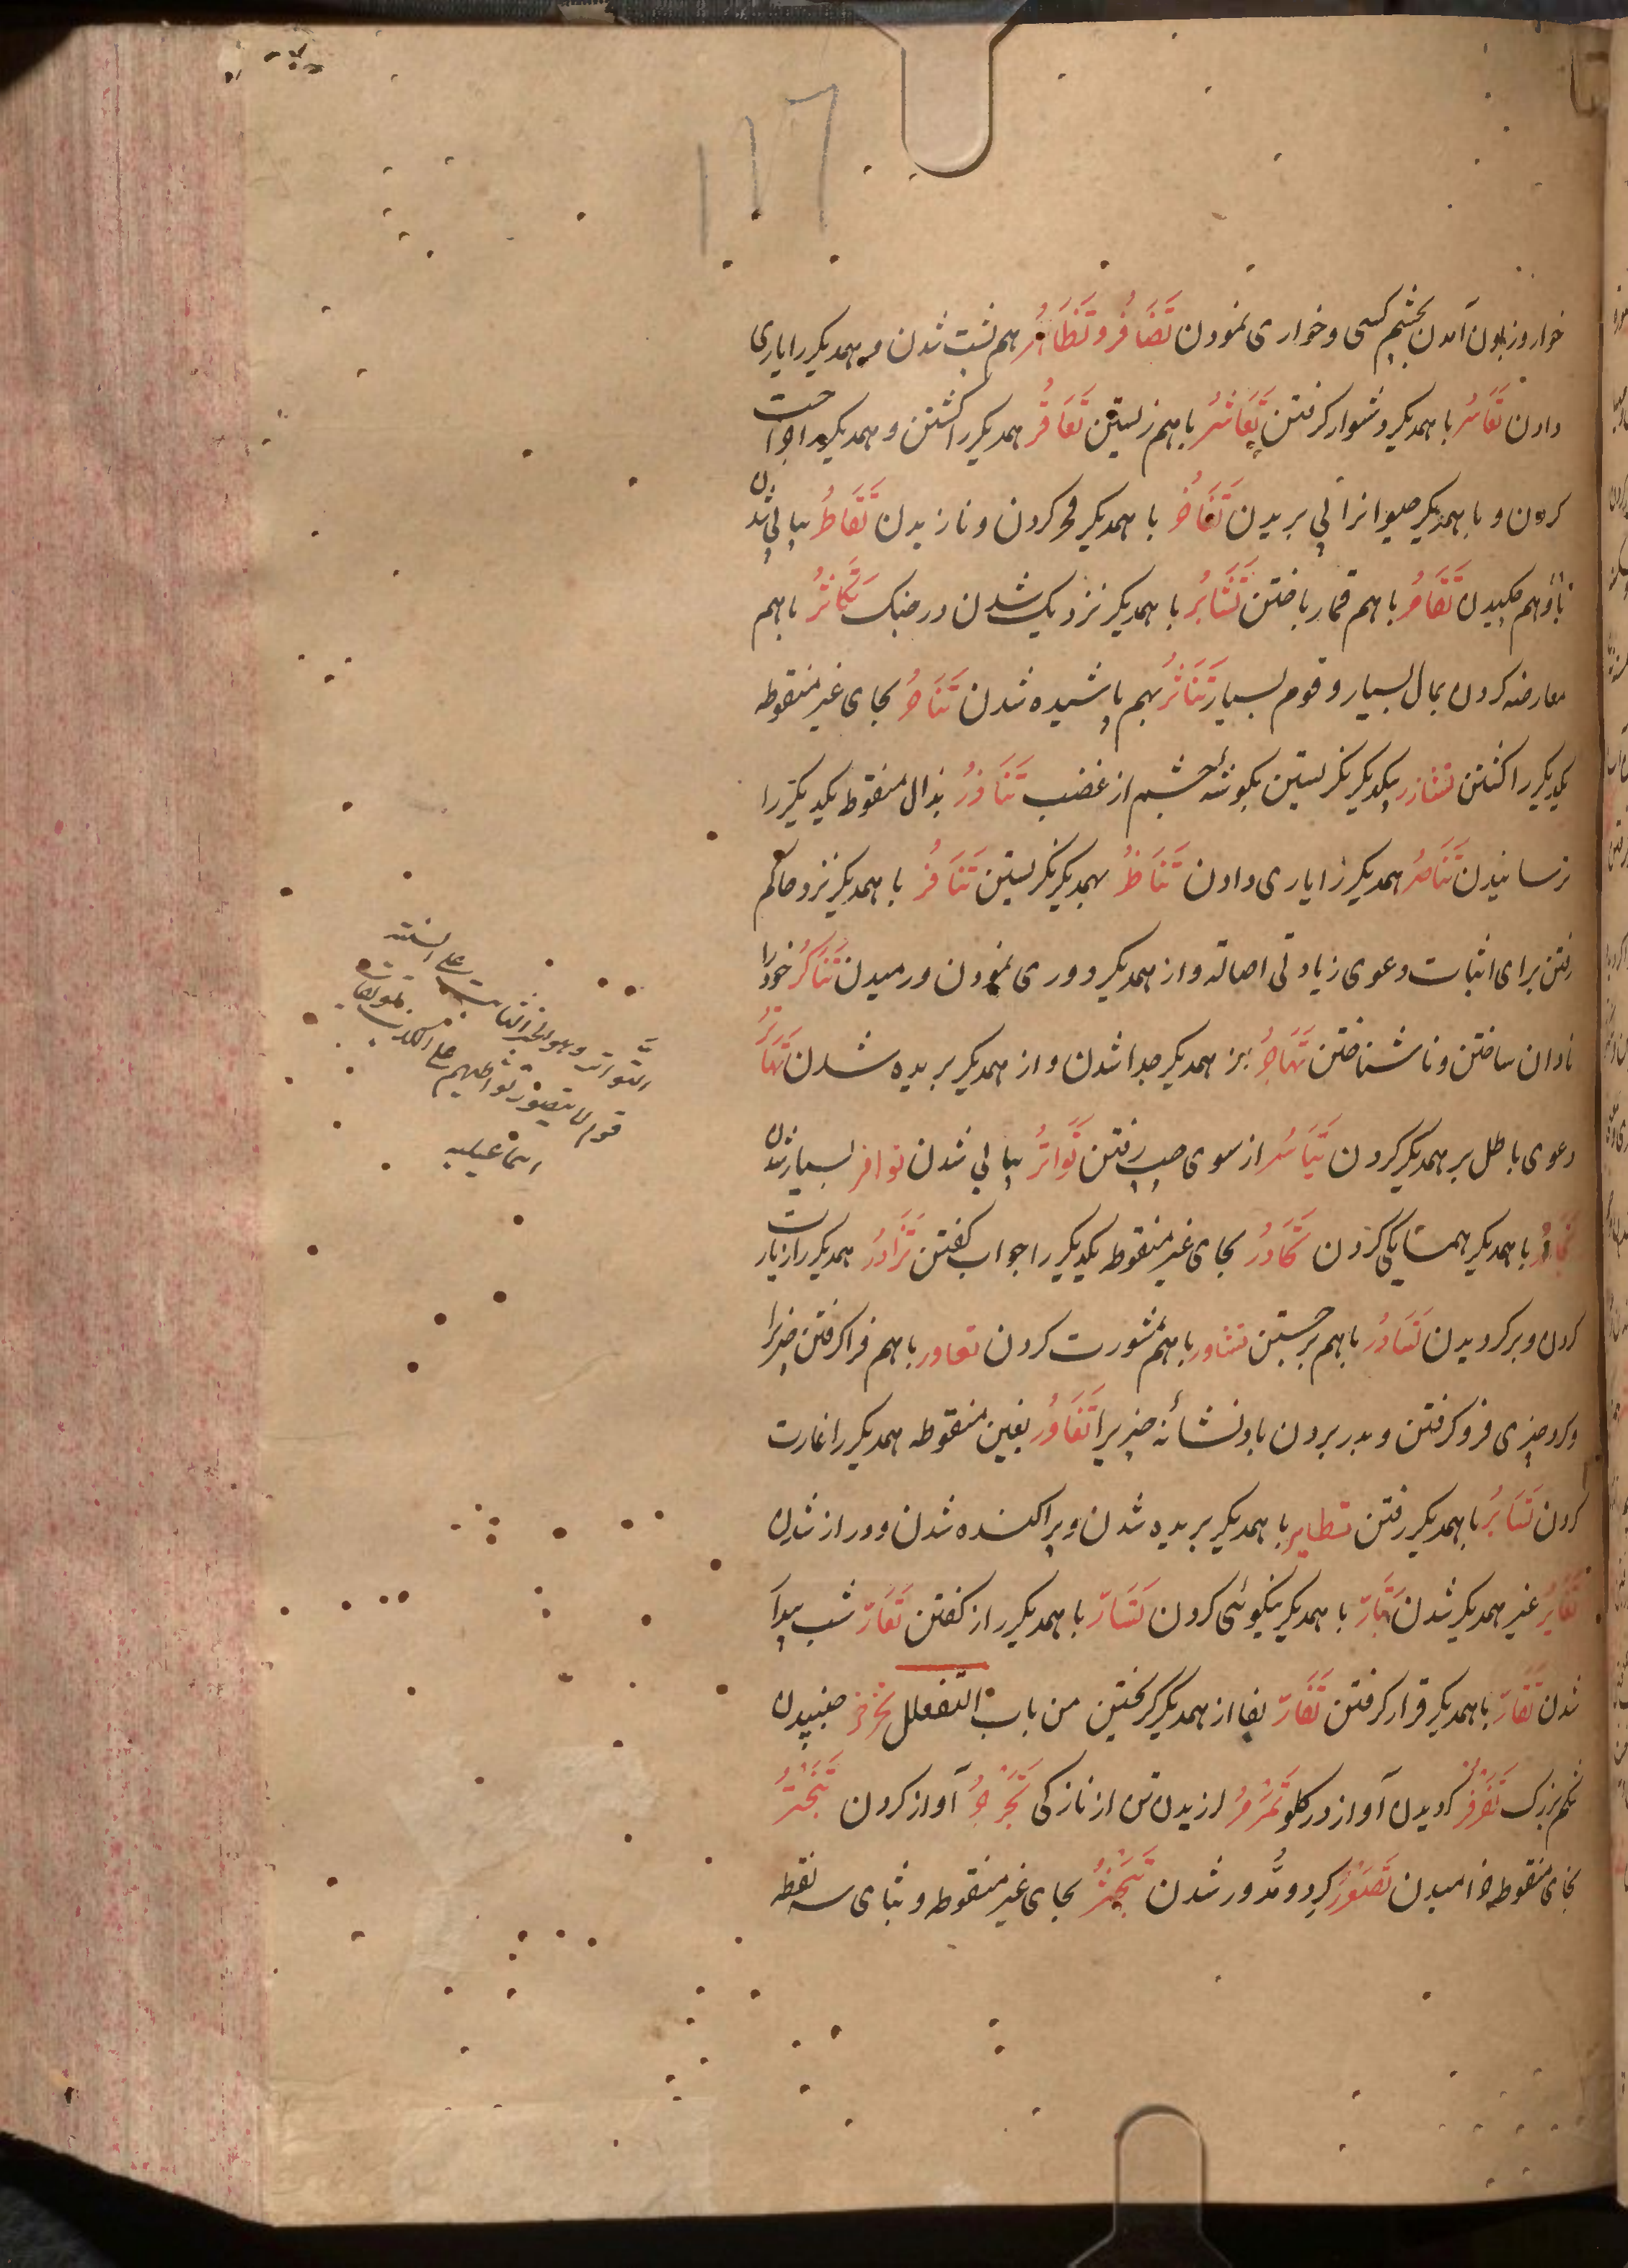 ۱۱۷
خوار و زبون آمدن بچشم کسی و خواری نمودن تَضَافُر و تَظَاهُر هم پشت شدن و همدیکر را یاری
دادن تَعَاسُر با همدیکر دشوار کرفتن تَعَاشُر با هم زیستن تَعَاقُر همدیکر را کشتن و همدیکر را جراحت
کردن و با همدیکر حیوانرا پی بریدن تَفَاخُر با همدیکر فخر کردن و نازیدن تَقَاطُر پیاپی شدن
و با هم چکیدن تَقَامُر با هم قمار باختن تَشَابُر با همدیکر نزدیک شدن در جنک تَکَاثُر با هم
معارضه کردن بمال بسیار و قوم بسیار تَنَاثُر بهم پاشیده شدن تَنَاحُر بحای غیر منقوطه
یکدیکر را کشتن تشازر بیکدیکر نکریستن بکوشه چشم از غضب تَنَاذُر بذال منقوط یکدیکر را
ترسانیدن تَنَاصُر همدیکر را یاری دادن تَنَاظُر بهمدیکر نکریستن تَنَافُر با همدیکر نزد حاکم
رفتن برای اثبات دعوی زیادتی اصالة و از همدیکر دوری نمودن و رمیدن تَنَاکُر خود را
نادان ساختن و ناشناختن تَهَاجُر از همدیکر جدا شدن و از همدیکر بریده شدن تَهَاتُر
دعوی باطل بر همدیکر کردن تَیَاسُر از سوی چپ رفتن تَوَاتُر پیاپی شدن توافر بسیار شدن
تَجَاوُر با همدیکر همسایکی کردن تَحَاوُر بحای غیر منقوطه یکدیکر را جواب کفتن تَزَاوُر همدیکر را زیارت
کردن و برکردیدن تَسَاوُر با هم برجستن تشاور با هم مشورت کردن تعاور با هم فرا کرفتن چیزیرا
و کرد چیزی فرو کرفتن و بدر بردن باد نشانه چیزیرا تَغَاوُر بغین منقوطه همدیکر را غارت
کردن تَسَایُر با همدیکر رفتن تطایر با همدیکر بریده شدن و پراکنده شدن و دراز شدن
تَغَایُر غیر همدیکر شدن تَبَارّ با همدیکر نیکوئی کردن تَسَارّ با همدیکر راز کفتن تَعَارّ شب بیدار
شدن تَقَارّ با همدیکر قرار کرفتن تَفَارّ بفا از همدیکر کریختن من باب التفعلل تخرخر جنبیدن
شکم بزرک تَغَرْغُر کردیدن آواز در کلو تَمَرْمُر لرزیدن تن از نازکی تَجَرْجُر آواز کردن تَبَخْتُر
بخای منقوطه خرامیدن تَصَعْرُر کرد و مدور شدن تَبَحْثُر بحای غیر منقوطه و بثای سه نقطه
التواتر وهو الخبر الثابت علی السنة
قوم لا یتصور تواطئهم علی الکذب